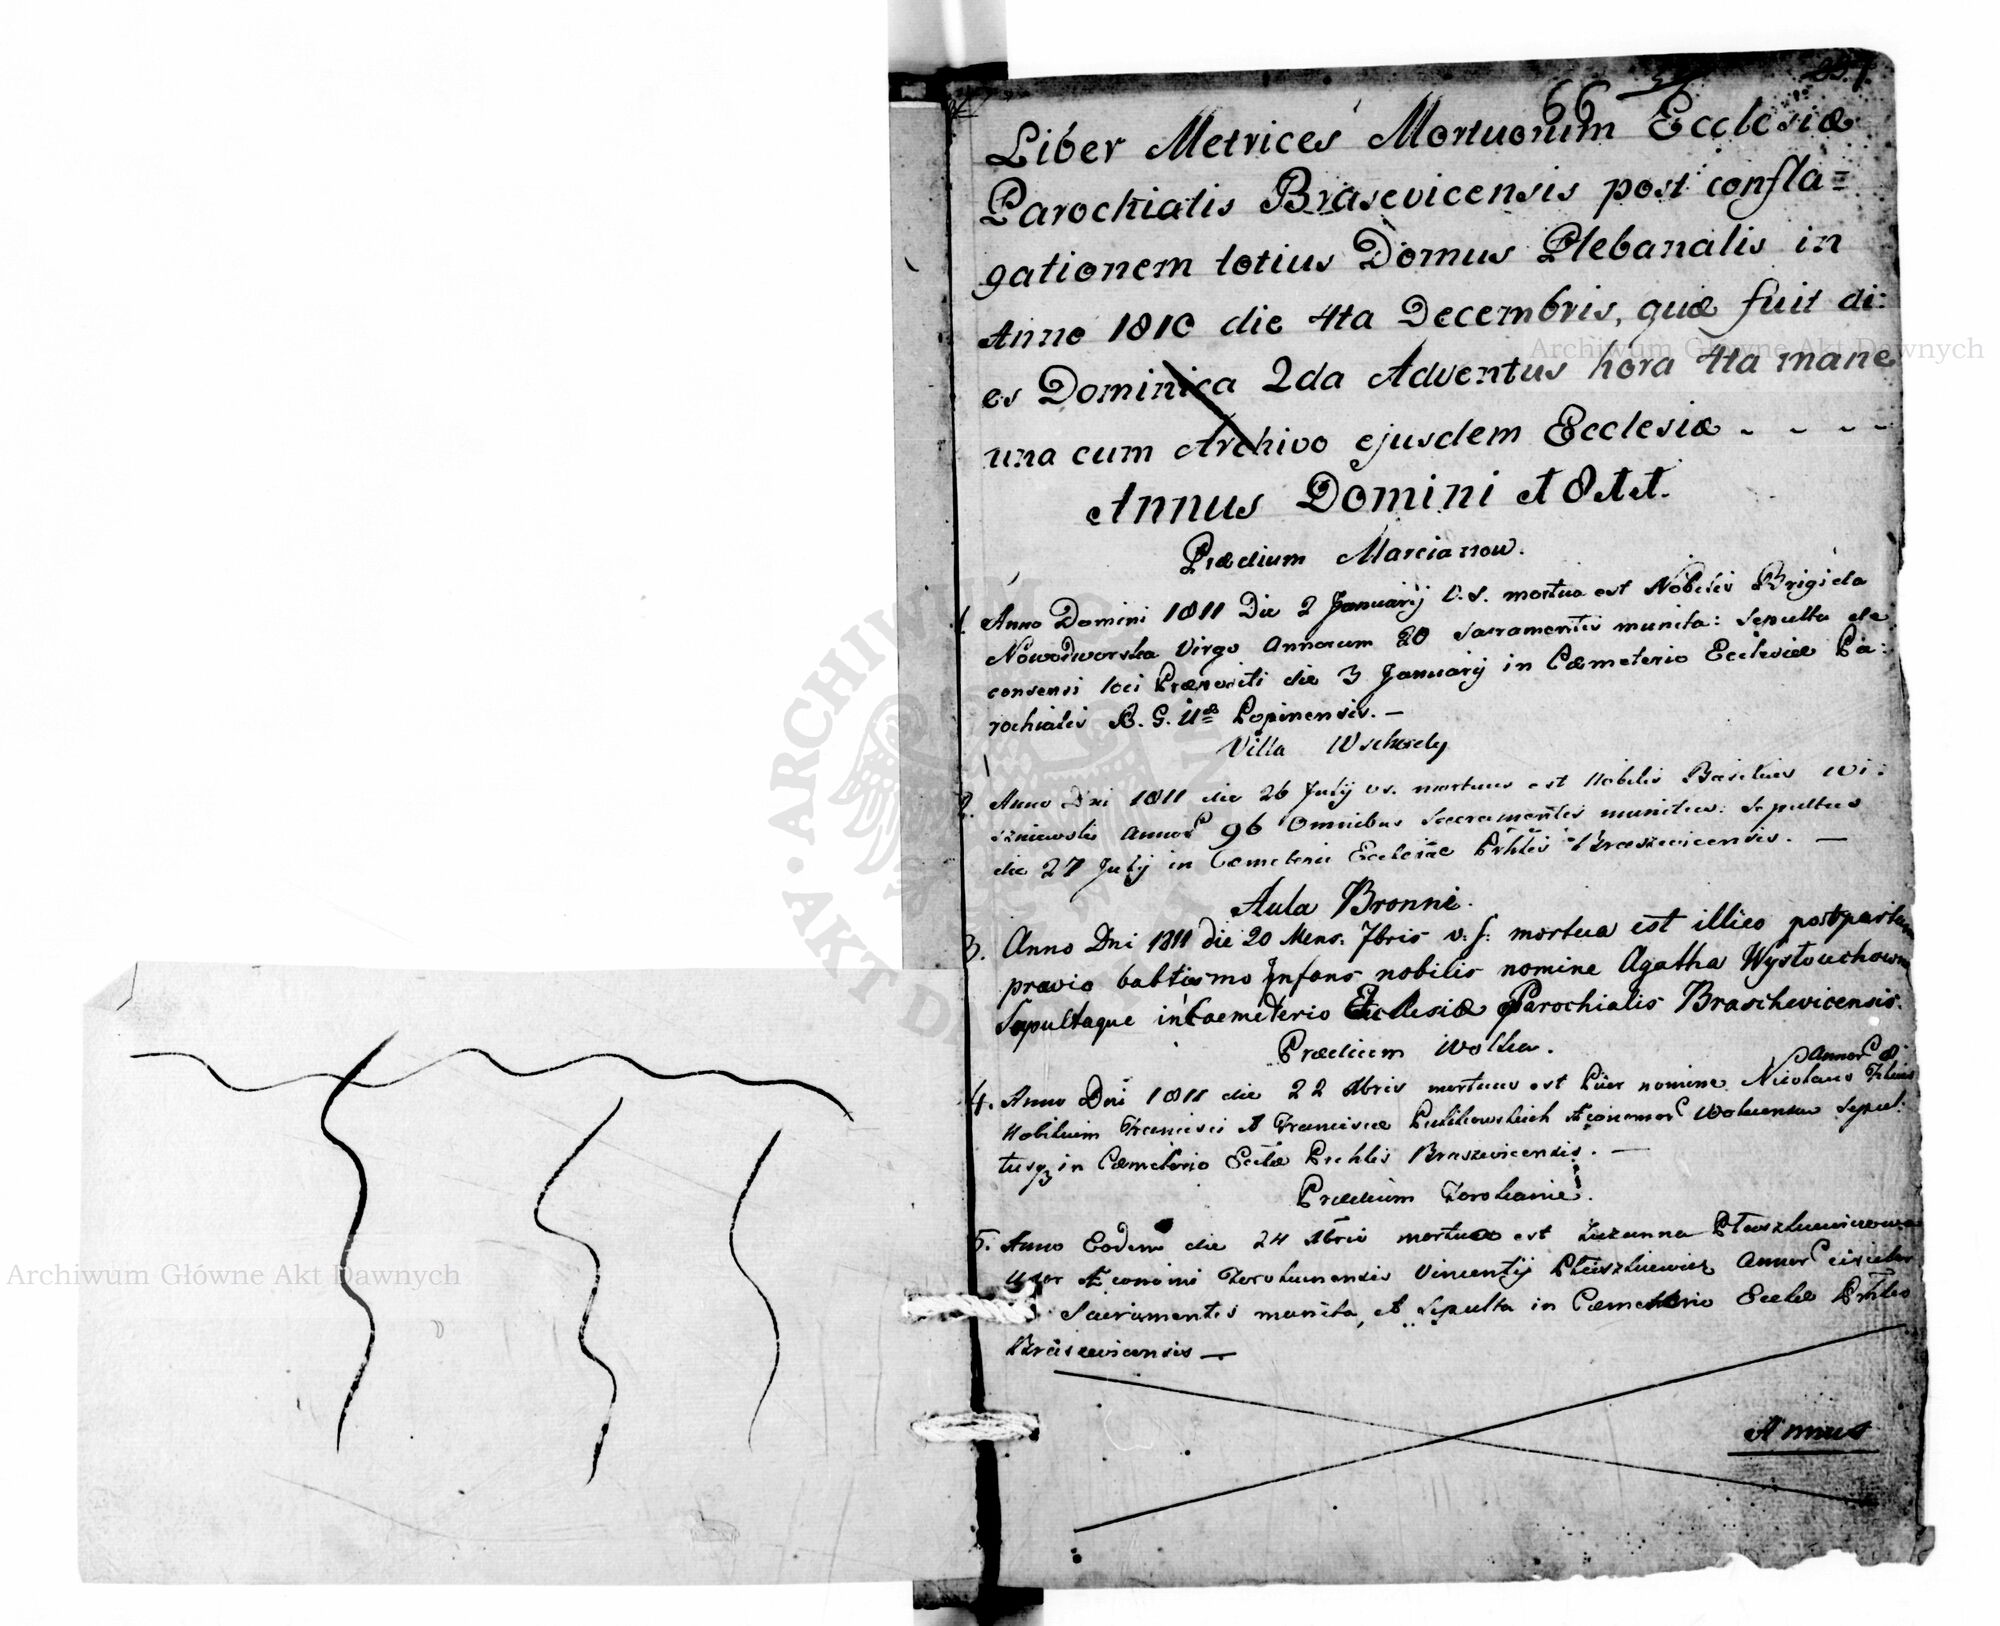 66
Liber Metrices Mortuorum Ecclesiæ
Parochialis Brasevicensis post confla=
gationem totius Domus Plebanalis in
Anno 1810 die 4ta Decembris, quæ fuit di:
es Dominica 2da Adventus hora 4ta mane
una cum Archivo ejusdem Ecclesiæ - - - -
Annus Domini 1811.
Prædium Marcianow.
1. Anno Domini 1811 Die 2 Januarij v.s. mortua est Nobilis Brigida
Nowodworska Virgo Annorum 20 Sacramentis munita: Sepulta de
consensi loci Præpositi die 3 Januarij in Cæmeterio Ecclesiæ Pa:
rochialis R. G. Lopinensis. —
Villa
2. Anno Dni 1811 die 26 Julij v.s. mortuus est Nobilis Basilius Wi:
szniewski 96 Omnibus Sacramentis munitus: Sepultus
die 27 Julij in Cæmeterii Ecclesiæ Braszewicensis. —
Aula Bronne.
3. Anno Dni 1811 die 20 Mens. 7bris v. s. mortua est illico post partum
prævio babtismo Infans nobilis nomine Agatha Wysłouchowna
Sepultaque in Caemeterio Ecclesiæ Parochialis Braschevicensis.
Prædium Wolka.
4. Anno Dni 1811 die 22 mortuus est Puer nomine Nicolaus Filius
Nobilium Francisci et Franciscæ Sepul:
tusq in Cæmeterio Ecclæ Prchlis Braszevicensis. —
Prædium Zorokanie.
5. Anno Eodem die 24 mortua est Zuzanna
Uxor Æconomi Vincentij
Sacramentis munita, et Sepulta in Cæmeterio Ecclæ
Brasevicensis —
Annus
Archiwum Główne Akt Dawnych
Archiwum Główne Akt Dawnych